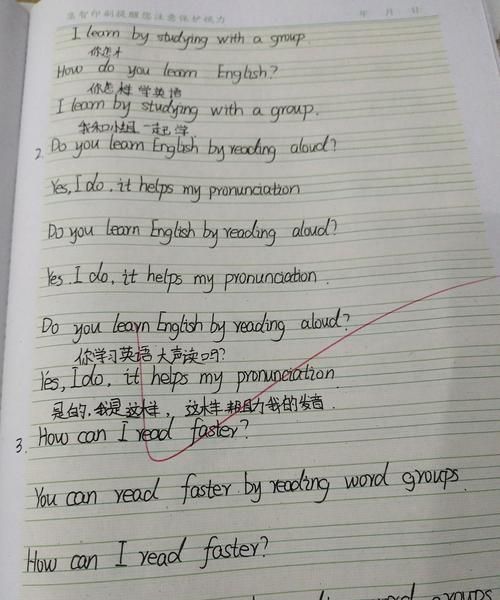 集智印刷提醒您注意保护视力 年 月 日
I learn by studying with a group.
你怎才
How do you learn English?
你怎样学英语
I learn by studying with a group.
我和小组一起学.
2. Do you learn English by reading aloud?
Yes, I do, it helps my pronunciation
Do you learn English by reading aloud?
Yes. I do, it helps my pronunciation.
Do you learn English by reading aloud?
你学习英语大声读吗?
Yes, I do, it helps my pronunciation.
是的.我是这样, 这样帮助我的发音.
3. How can I read faster?
You can read faster by reading word groups.
How can I read faster?
reading word groups